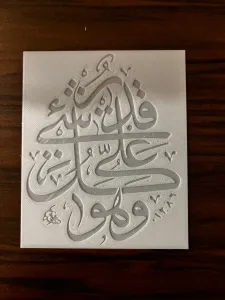 وهو على كل شيء قدير
١٢٨٢